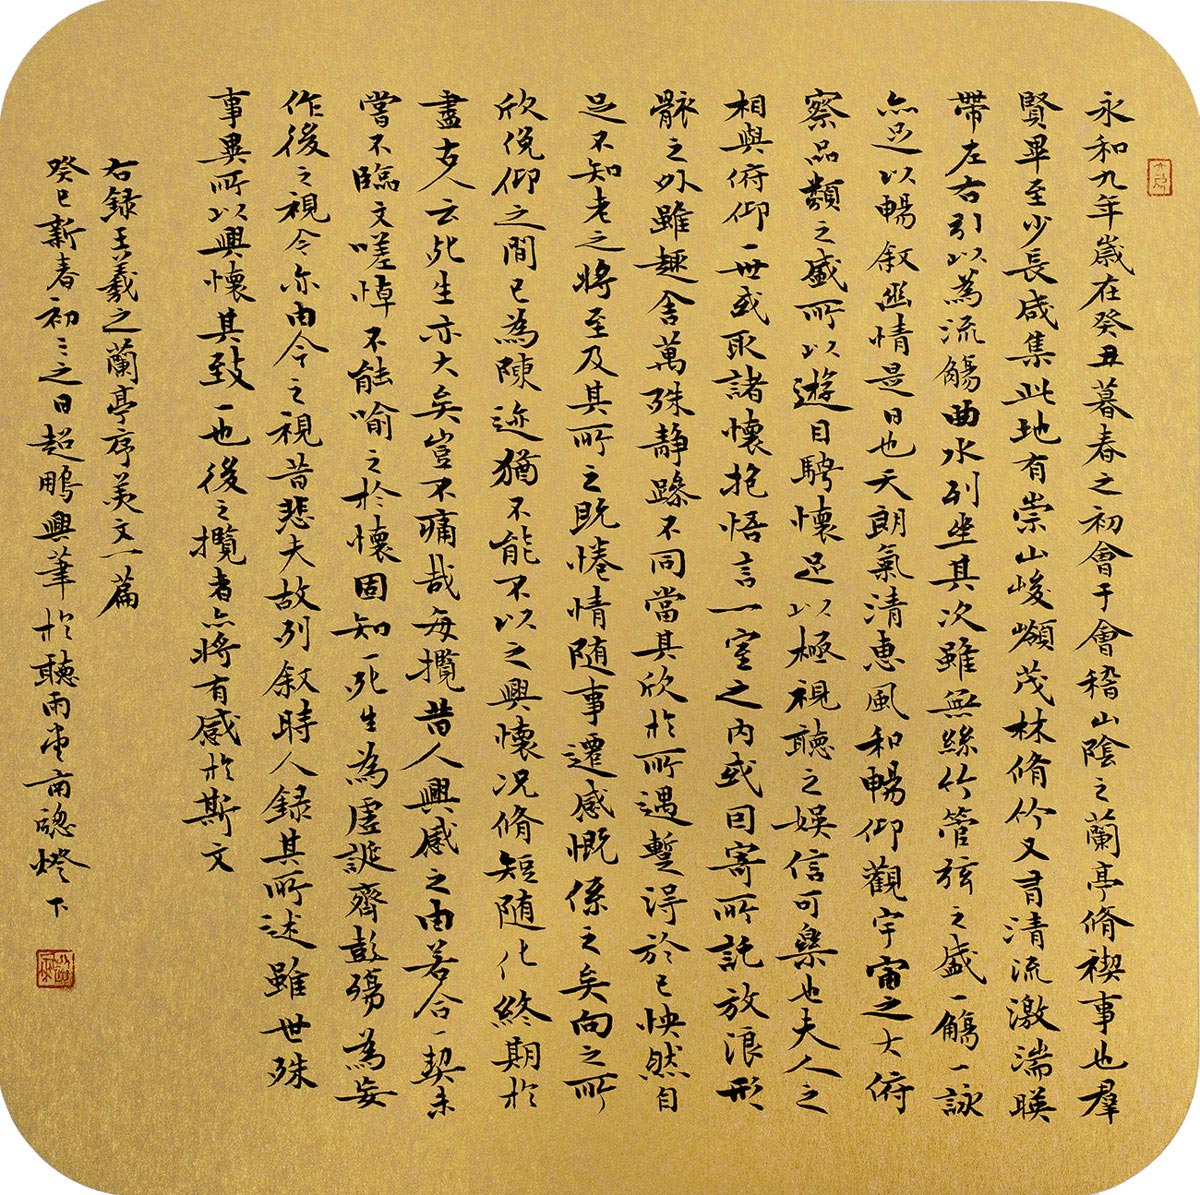 永和九年歲在癸丑暮春之初會于會稽山陰之蘭亭脩禊事也羣
賢畢至少長咸集此地有崇山峻嶺茂林脩竹又有清流激湍暎
帶左右引以為流觴曲水列坐其次雖無絲竹管弦之盛一觴一詠
亦足以暢叙幽情是日也天朗氣清惠風和暢仰觀宇宙之大俯
察品類之盛所以遊目騁懷足以極視聽之娛信可樂也夫人之
相與俯仰一世或取諸懷抱悟言一室之内或因寄所託放浪形
骸之外雖趣舍萬殊静躁不同當其欣於所遇蹔得於己怏然自
足不知老之將至及其所之既惓情随事遷感慨係之矣向之所
欣俛仰之間已為陳迹猶不能不以之興懷况脩短随化終期於
盡古人云死生亦大矣豈不痛哉每攬昔人興感之由若合一契未
嘗不臨文嗟悼不能喻之於懷固知一死生為虛誕齊彭殤為妄
作後之視今亦由今之視昔悲夫故列叙時人錄其所述雖世殊
事異所以興懷其致一也後之攬者亦將有感於斯文
右錄王羲之蘭亭序美文一篇
癸巳新春初二之日超鵬興筆於聽雨堂南窗燈下